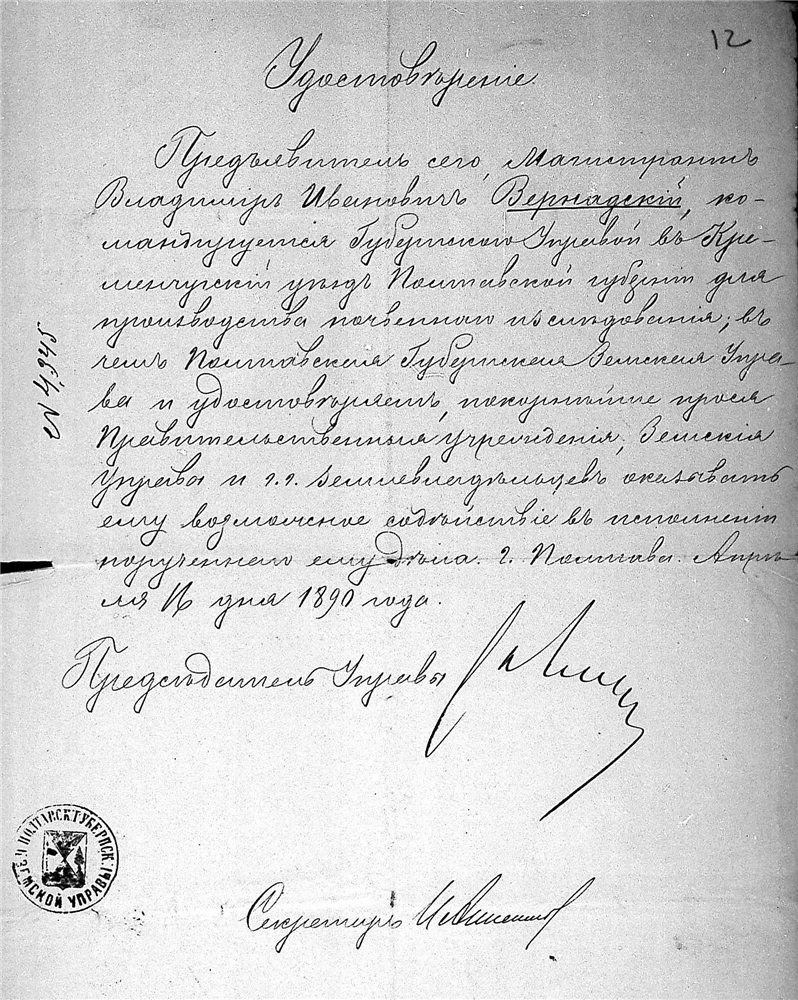 12
Удостовѣреніе.
Предъявитель сего, Магистрантъ
Владиміръ Ивановичъ Вернадскій, ко-
мандируется Губернскою Управой въ Кре-
менчугскій уѣздъ Полтавской губерніи для
производства почвеннаго изслѣдованія; въ
чемъ Полтавская Губернская Земская Упра-
ва и удостовѣряетъ, покорнѣйше прося
Правительственныя учрежденія, Земскія
Управы и г.г. землевладѣльцевъ оказывать
ему возможное содѣйствіе въ исполненіи
порученнаго ему дѣла. г. Полтава. Апрѣ-
ля 16 дня 1890 года.
Предсѣдатель Управы
№ 4,945
ПОЛТАВСК ГУБЕРНСК ЗЕМСКОЙ УПРАВЫ
Секретарь